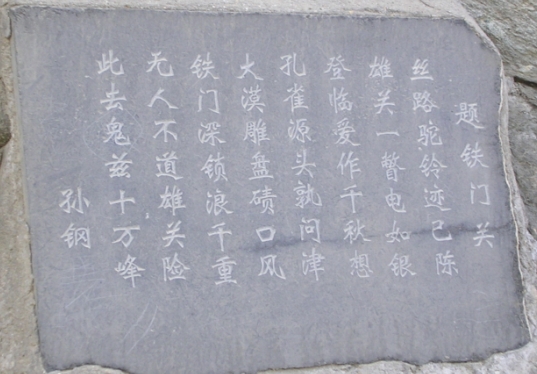 题铁门关
丝路驼铃迹已陈
雄关一瞥电如银
登临爱作千秋想
孔雀源头孰问津
大漠雕盘碛口风
铁门深锁浪千重
无人不道雄关险
此去龟兹十万峰
孙钢